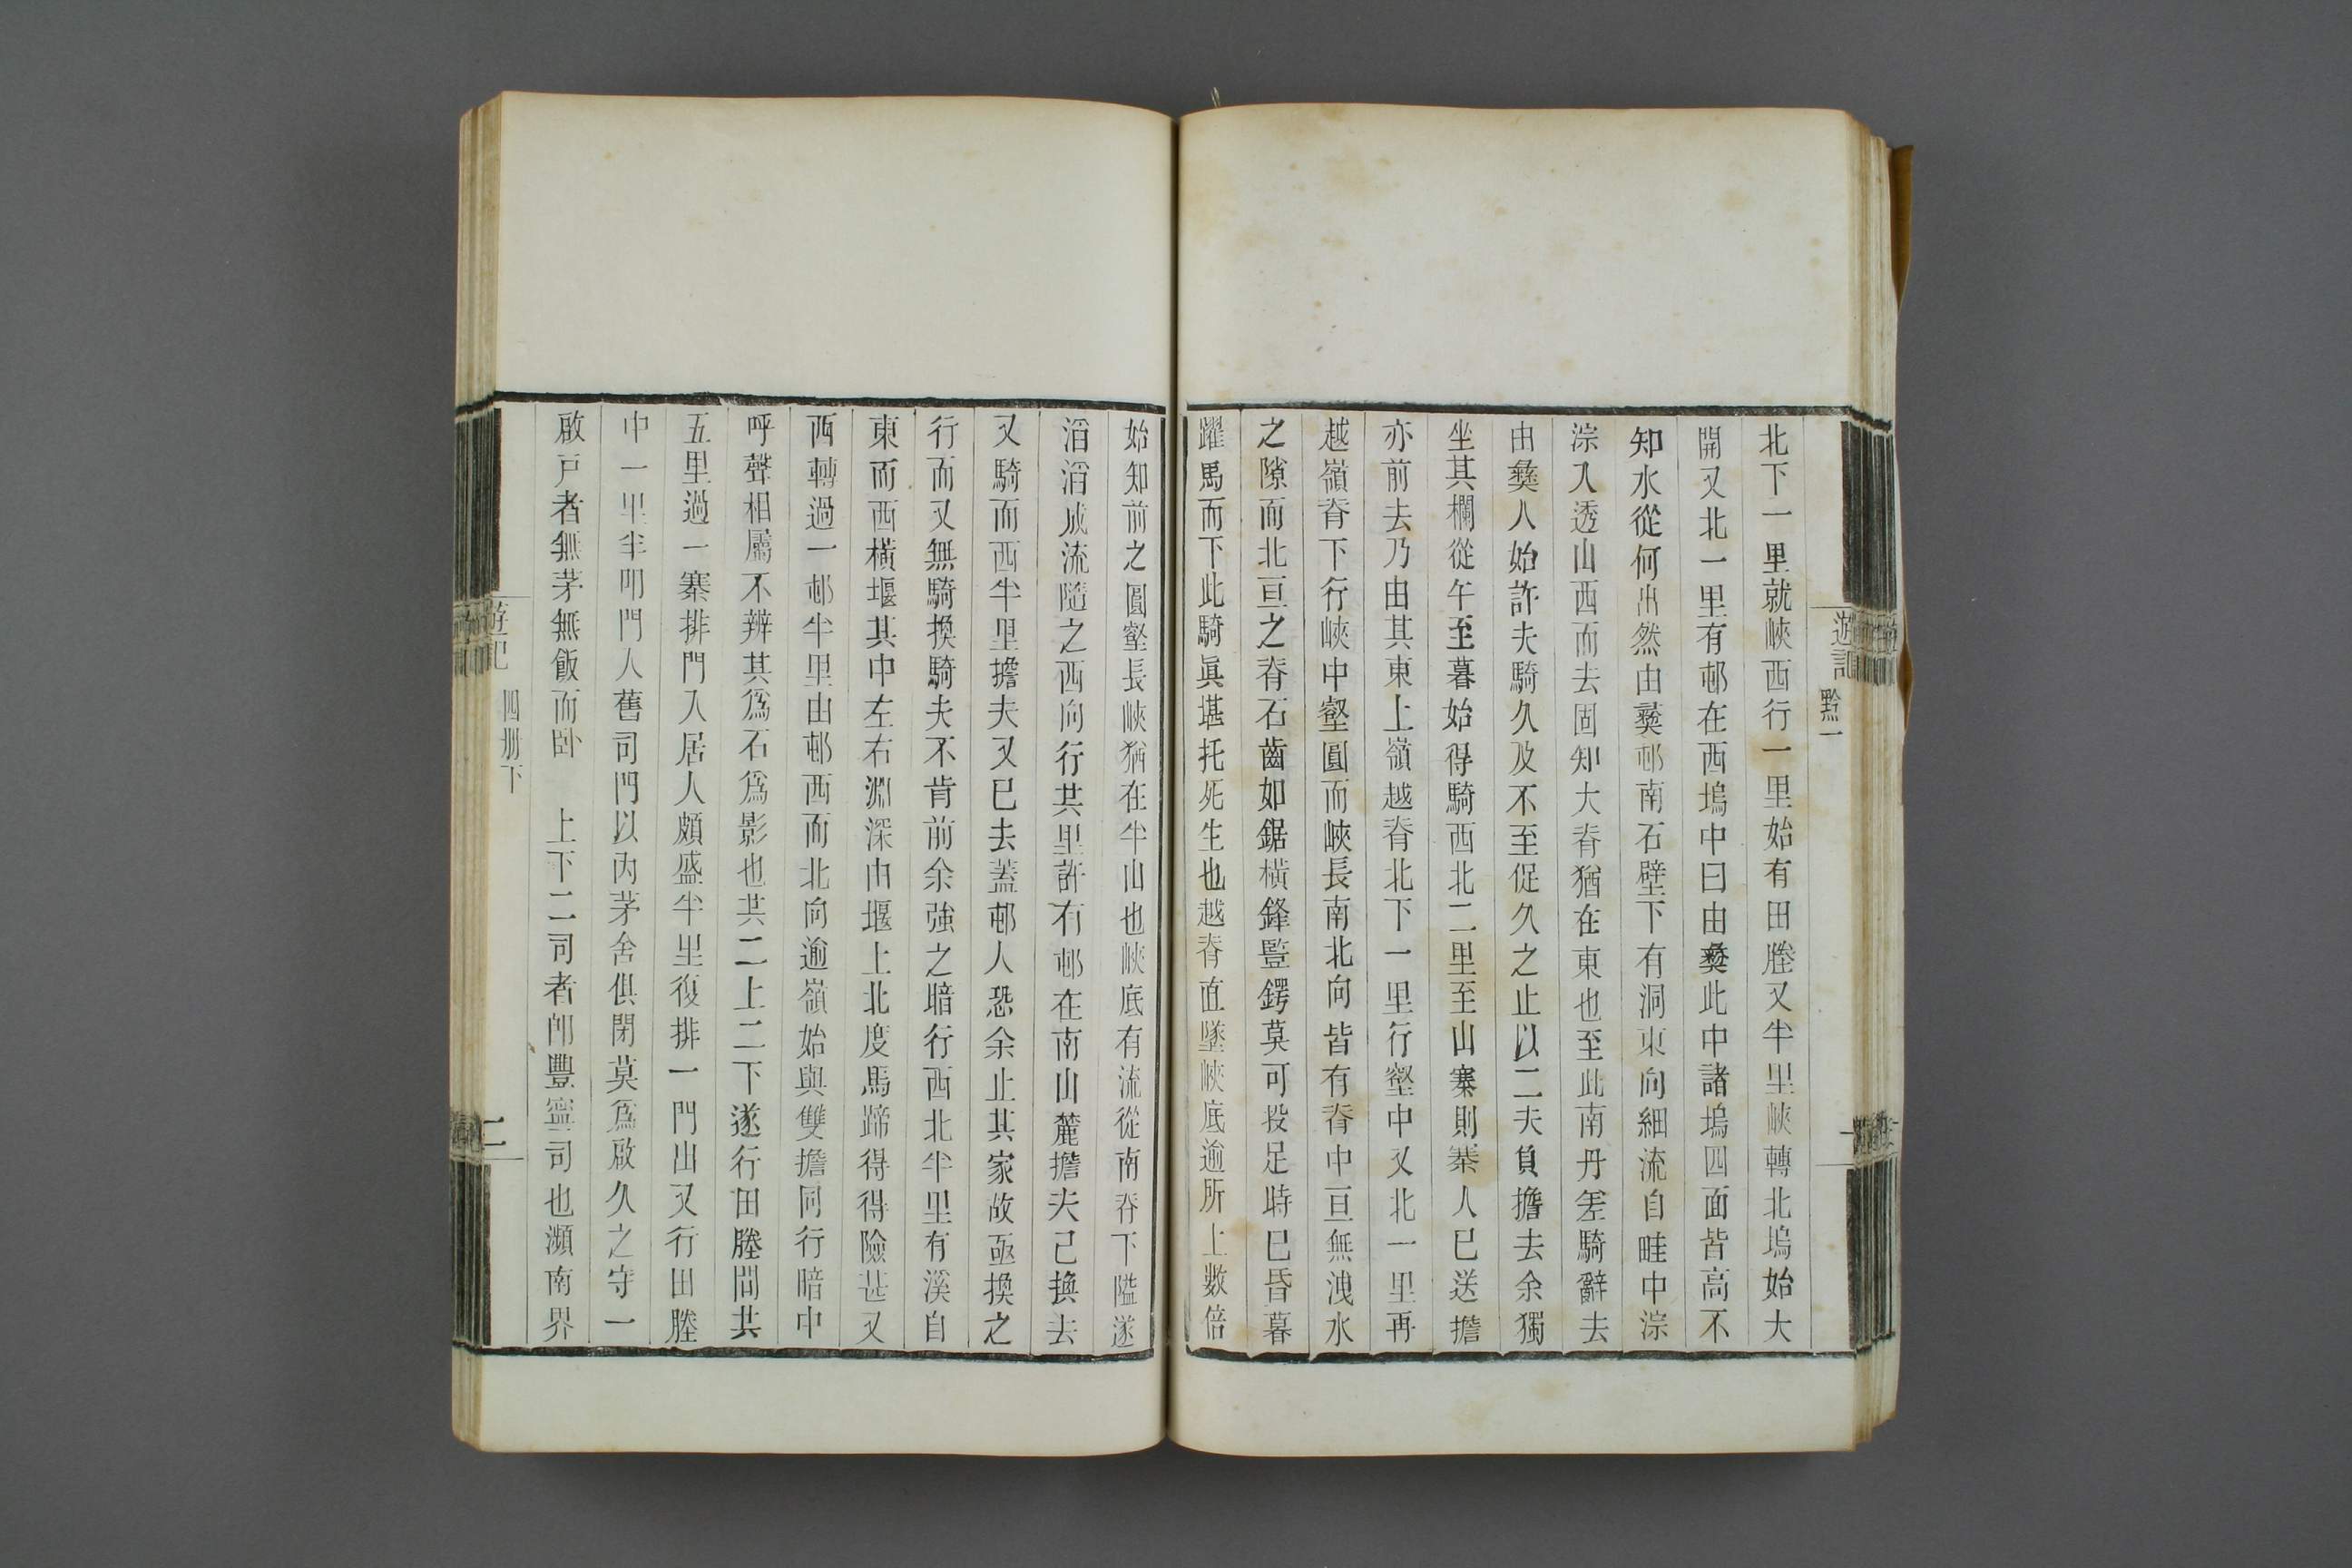 遊記 黔一
北下一里就峽西行一里始有田塍又半里峽轉北塢始大
開又北一里有邨在西塢中曰由彝此中諸塢四面皆高不
知水從何出然由彝邨南石壁下有洞東向細流自畦中淙
淙入透山西而去固知大脊猶在東也至此南丹差騎辭去
由彝人始許夫騎久及不至促久之止以二夫負擔去余獨
坐其欄從午至暮始得騎西北二里至山寨則寨人已送擔
亦前去乃由其東上嶺越脊北下一里行壑中又北一里再
越嶺脊下行峽中壑圓而峽長南北向皆有脊中亘無洩水
之隙而北亘之脊石齒如鋸橫鋒豎鍔莫可投足時已昏暮
躍馬而下此騎眞堪托死生也越脊直墜峽底逾所上數倍
始知前之圓壑長峽猶在半山也峽底有流從南脊下隘遂
滔滔成流隨之西向行共里許有邨在南山麓擔夫已換去
又騎而西半里擔夫又已去蓋邨人恐余止其家故亟換之
行而又無騎換騎夫不肯前余強之暗行西北半里有溪自
東而西橫堰其中左右淵深由堰上北度馬蹄得得險甚又
西轉過一邨半里由邨西而北向逾嶺始與雙擔同行暗中
呼聲相屬不辨其爲石爲影也共二上二下遂行田塍間共
五里過一寨排門入居人頗盛半里復排一門出又行田塍
中一里半叩門入舊司門以內茅舍俱閉莫爲啟久之守一
啟戸者無茅無飯而卧　上下二司者卽豐寧司也瀕南界
遊記 四册下 二